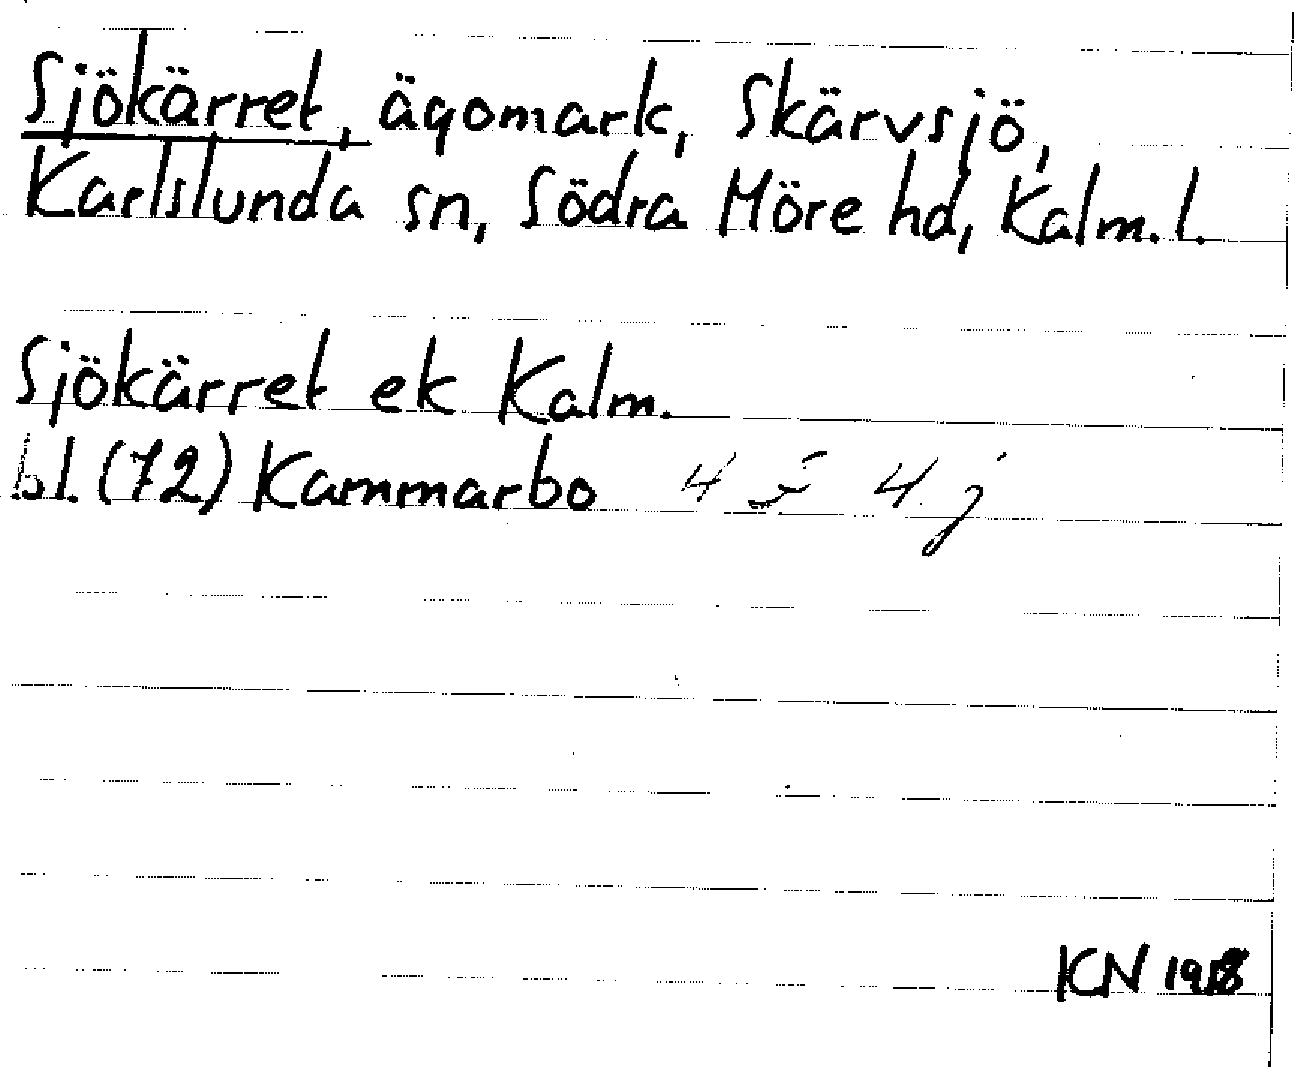 Sjökärret, ägomark, Skärvsjö,
Karlslunda sn, Södra Möre hd, Kalm. l.
Sjökärret ek Kalm.
bl. (72) Kammarbo 4 F 4 j
KCN 1958